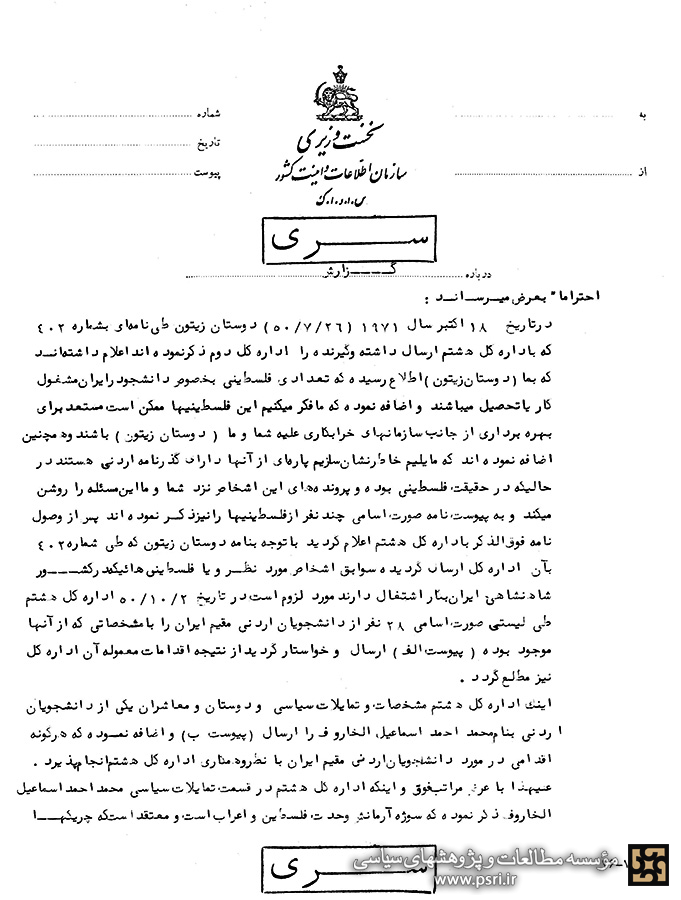 به
شماره
تاریخ
از
پیوست
نخست وزیری
سازمان اطلاعات و امنیت کشور
س.ا.و.ا.ک
سری
درباره گزارش
احتراما" بعرض میرساند :
درتاریخ ۱۸ اکتبر سال ۱۹۷۱ (۵۰/۷/۲۶) دوستان زیتون طی نامه‌ای بشماره ۴۰۲
که باداره کل هشتم ارسال داشته وگیرنده را اداره کل دوم ذکرنموده اند اعلام داشته‌اند
که بما (دوستان زیتون) اطلاع رسیده که تعدادی فلسطینی بخصوص دانشجو درایران مشغول
کار یا تحصیل میباشند و اضافه نموده که مافکر میکنیم این فلسطینیها ممکن است مستعد برای
بهره برداری از جانب سازمانهای خرابکاری علیه شما و ما (دوستان زیتون) باشند وهمچنین
اضافه نموده اند که مایلیم خاطرنشان سازیم پاره‌ای از آنها دارای گذرنامه اردنی هستند در
حالیکه در حقیقت فلسطینی بوده و پرونده های این اشخاص نزد شما و ما این مسئله را روشن
میکند و به پیوست نامه صورت اسامی چند نفر از فلسطینیها را نیز ذکر نموده اند پس از وصول
نامه فوق الذکر باداره کل هشتم اعلام گردید با توجه بنامه دوستان زیتون که طی شماره ۴۰۲
بآن اداره کل ارسال گردیده سوابق اشخاص مورد نظر و یا فلسطینی هائیکه درکشور
شاهنشاهی ایران بکار اشتغال دارند مورد لزوم است در تاریخ ۵۰/۱۰/۲ اداره کل هشتم
طی لیستی صورت اسامی ۲۸ نفر از دانشجویان اردنی مقیم ایران را با مشخصاتی که از آنها
موجود بوده (پیوست الف) ارسال و خواستار گردید از نتیجه اقدامات معموله آن اداره کل
نیز مطلع گردد .
اینک اداره کل هشتم مشخصات و تمایلات سیاسی و دوستان و معاشران یکی از دانشجویان
اردنی بنام محمد احمد اسماعیل الخاروف را ارسال (پیوست ب) و اضافه نموده که هرگونه
اقدامی در مورد دانشجویان اردنی مقیم ایران با نظر و همکاری اداره کل هشتم انجام پذیرد .
علیهذا با عرض مراتب فوق و اینکه اداره کل هشتم در قسمت تمایلات سیاسی محمد احمد اسماعیل
الخاروف ذکر نموده که سوژه آرمانش وحدت فلسطین و اعراب است و معتقد است که چریکها
سری
مؤسسه مطالعات و پژوهشهای سیاسی
www.psri.ir